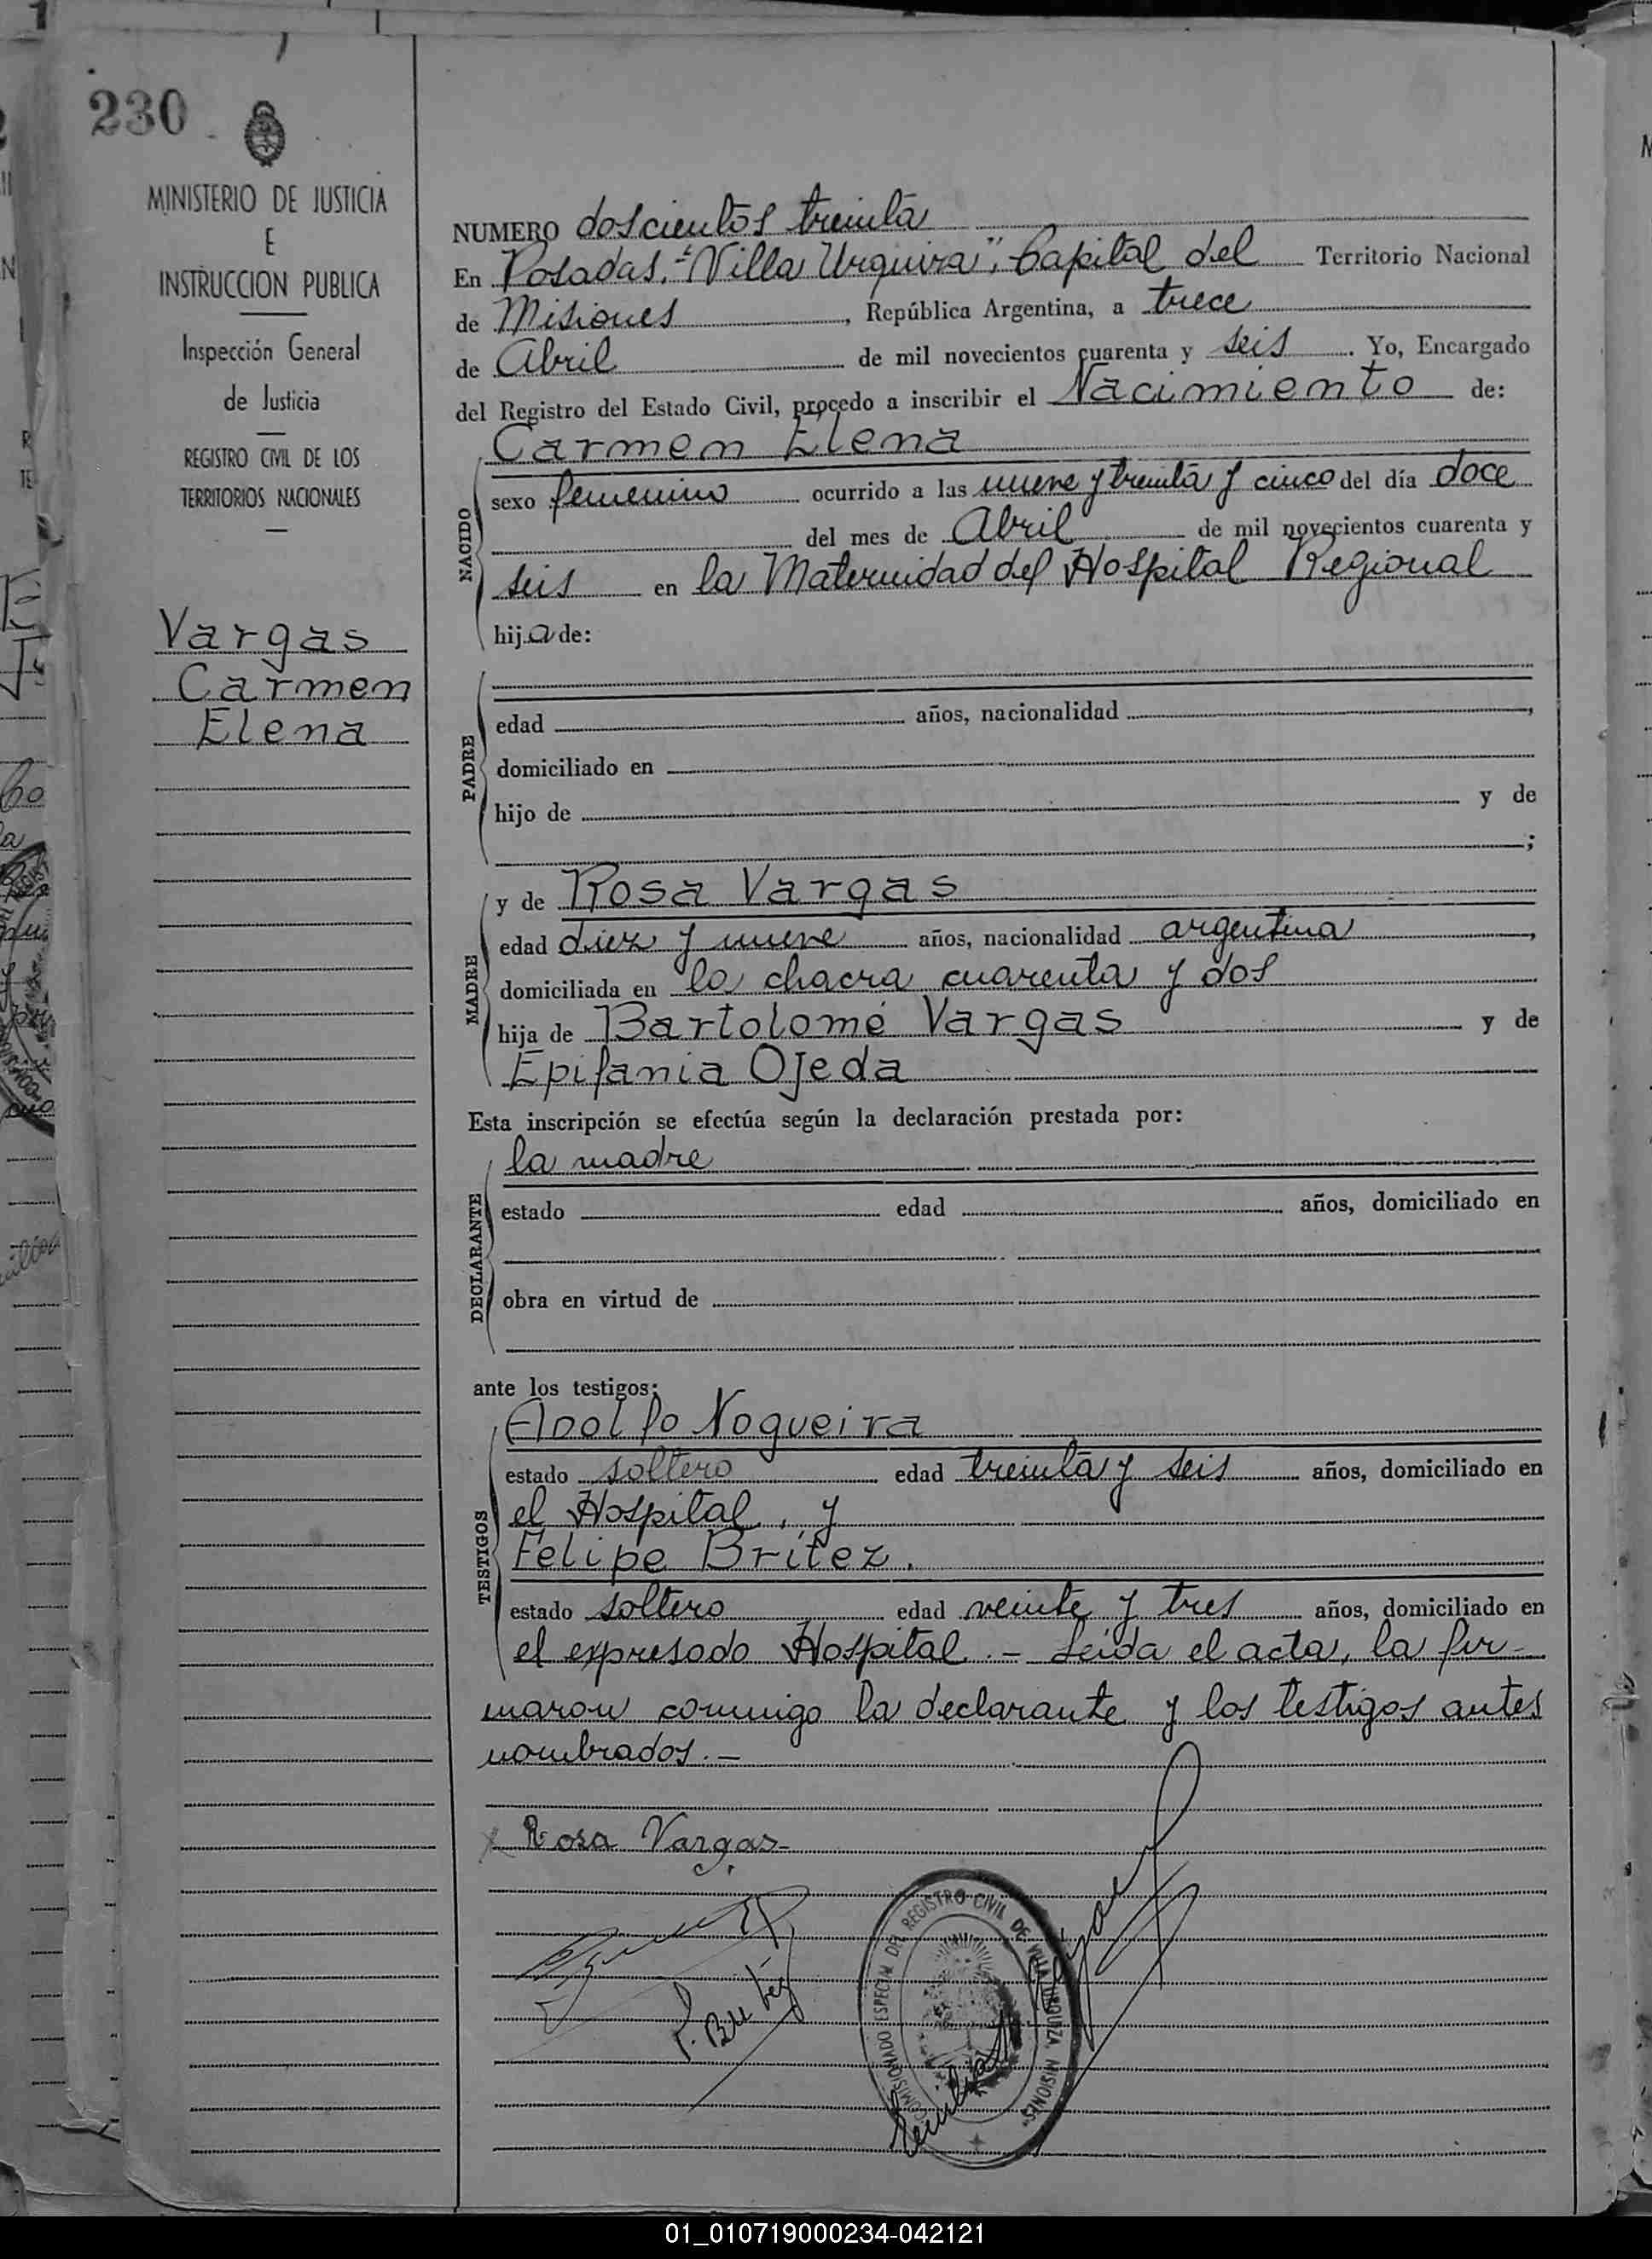 230
MINISTERIO DE JUSTICIA
E
INSTRUCCION PUBLICA
Inspección General
de Justicia
REGISTRO CIVIL DE LOS
TERRITORIOS NACIONALES
Vargas
Carmen
Elena
NUMERO doscientos treinta
En Posadas, "Villa Urquiza", Capital del Territorio Nacional
de Misiones, República Argentina, a trece
de Abril de mil novecientos cuarenta y seis. Yo, Encargado
del Registro del Estado Civil, procedo a inscribir el Nacimiento de:
Carmen Elena
NACIDO
sexo femenino ocurrido a las nueve y treinta y cinco del día doce
del mes de Abril de mil novecientos cuarenta y
seis en la Maternidad del Hospital Regional
hija de:
PADRE
edad años, nacionalidad ,
domiciliado en
hijo de y de
;
MADRE
y de Rosa Vargas
edad diez y nueve años, nacionalidad argentina,
domiciliada en la chacra cuarenta y dos
hija de Bartolomé Vargas y de
Epifania Ojeda
Esta inscripción se efectúa según la declaración prestada por:
DECLARANTE
la madre
estado edad años, domiciliado en
obra en virtud de
ante los testigos:
TESTIGOS
Adolfo Nogueira
estado soltero edad treinta y seis años, domiciliado en
el Hospital, y
Felipe Britez.
estado soltero edad veinte y tres años, domiciliado en
el expresado Hospital.- Leida el acta, la fir-
maron conmigo la declarante y los testigos antes
nombrados.-
x Rosa Vargas
F. Britez
COMISIONADO ESPECIAL DEL REGISTRO CIVIL DE VILLA URQUIZA, MISIONES
01_010719000234-042121